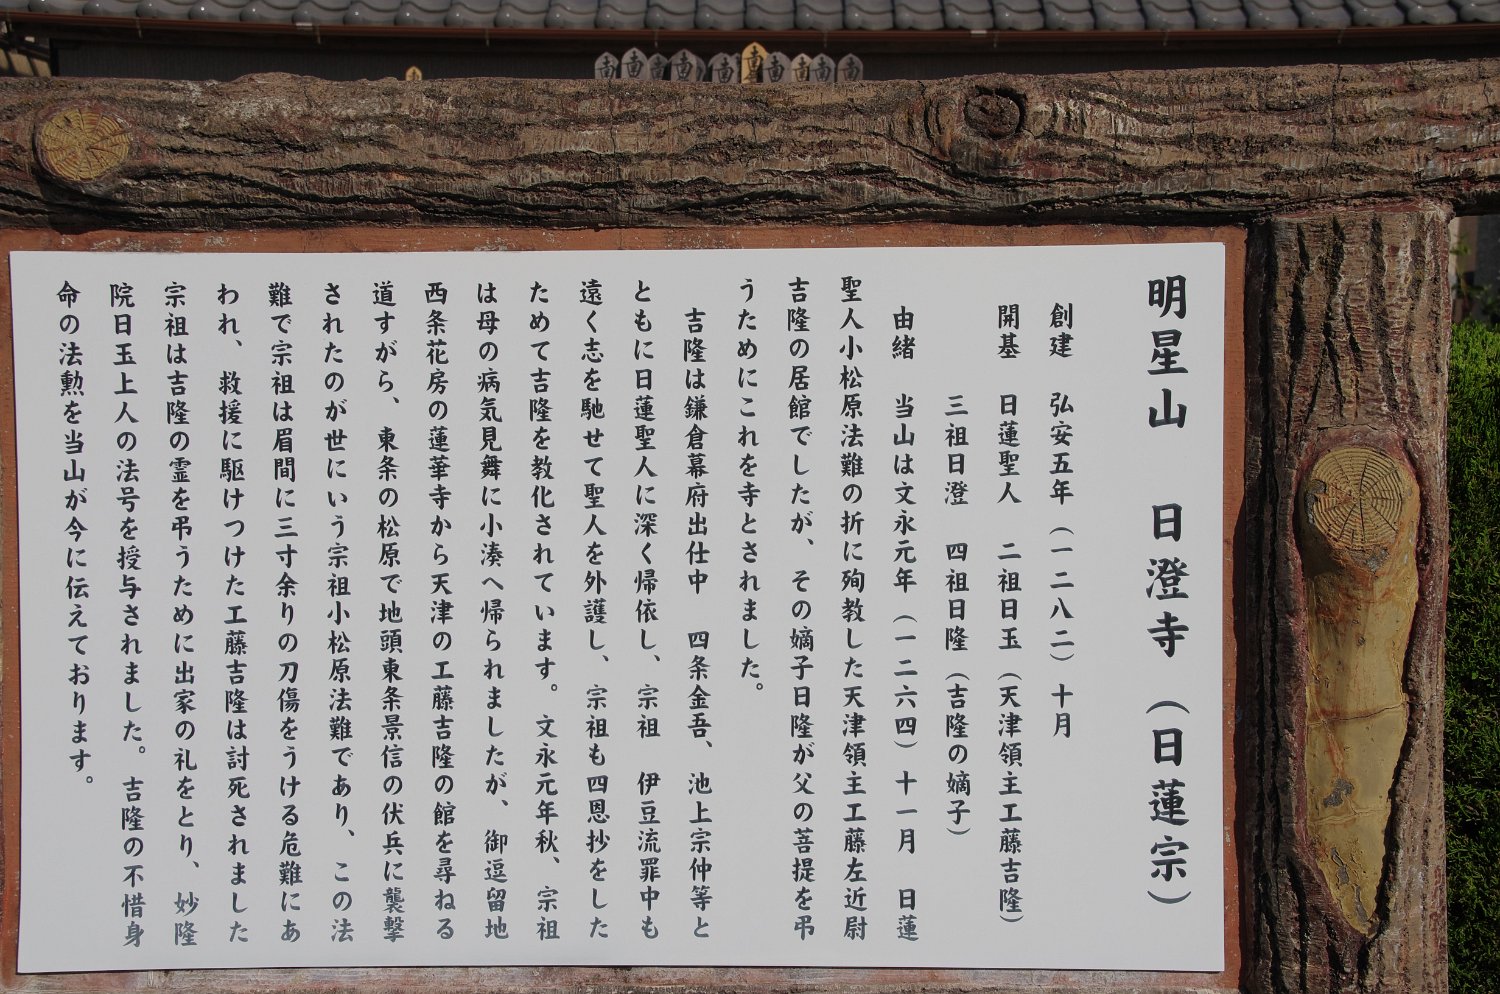 明星山　日澄寺（日蓮宗）
創建　弘安五年（一二八二）十月
開基　日蓮聖人　二祖日玉（天津領主工藤吉隆）
三祖日澄　四祖日隆（吉隆の嫡子）
由緒　当山は文永元年（一二六四）十一月　日蓮
聖人小松原法難の折に殉教した天津領主工藤左近尉
吉隆の居館でしたが、その嫡子日隆が父の菩提を弔
うためにこれを寺とされました。
吉隆は鎌倉幕府出仕中　四条金吾、池上宗仲等と
ともに日蓮聖人に深く帰依し、宗祖　伊豆流罪中も
遠く志を馳せて聖人を外護し、宗祖も四恩抄をした
ためて吉隆を教化されています。文永元年秋、宗祖
は母の病気見舞に小湊へ帰られましたが、御逗留地
西条花房の蓮華寺から天津の工藤吉隆の館を尋ねる
道すがら、東条の松原で地頭東条景信の伏兵に襲撃
されたのが世にいう宗祖小松原法難であり、この法
難で宗祖は眉間に三寸余りの刀傷をうける危難にあ
われ、救援に駆けつけた工藤吉隆は討死されました
宗祖は吉隆の霊を弔うために出家の礼をとり、妙隆
院日玉上人の法号を授与されました。吉隆の不惜身
命の法勲を当山が今に伝えております。